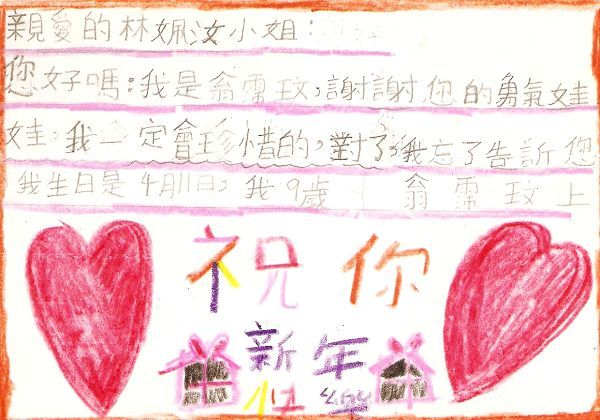 親愛的林姵汝小姐：
您好嗎：我是翁霈玟，謝謝您的勇氣娃
娃，我一定會珍惜的，對了，我忘了告訴您
我生日是4月11日，我9歲 翁霈玟上
祝你
新年
快樂